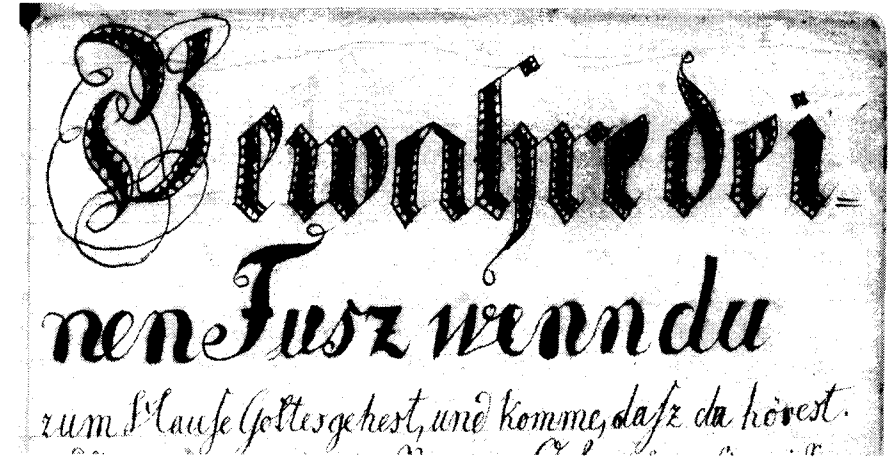 Bewahre dei=
nen Fusz wenn du
zum Hause Gottes gehest, und komme, dasz du hörest.